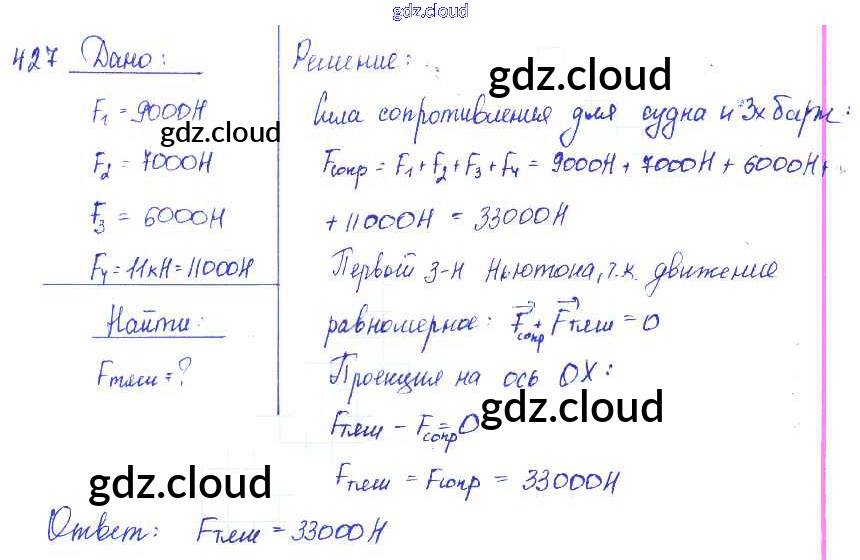 gdz.cloud
427 Дано:
F₁ = 9000Н
gdz.cloud
F₂ = 7000Н
F₃ = 6000Н
F₄ = 11кН = 11000Н
Найти:
Fтяги = ?
Решение:
gdz.cloud
Сила сопротивления для судна и 3х барж:
Fсопр = F₁ + F₂ + F₃ + F₄ = 9000Н + 7000Н + 6000Н +
+ 11000Н = 33000Н
Первый з-н Ньютона, т.к. движение
равномерное: F⃗сопр + F⃗тяги = 0
Проекция на ось OX:
gdz.cloud
Fтяги − Fсопр = 0
Fтяги = Fсопр = 33000Н
gdz.cloud
Ответ: Fтяги = 33000Н